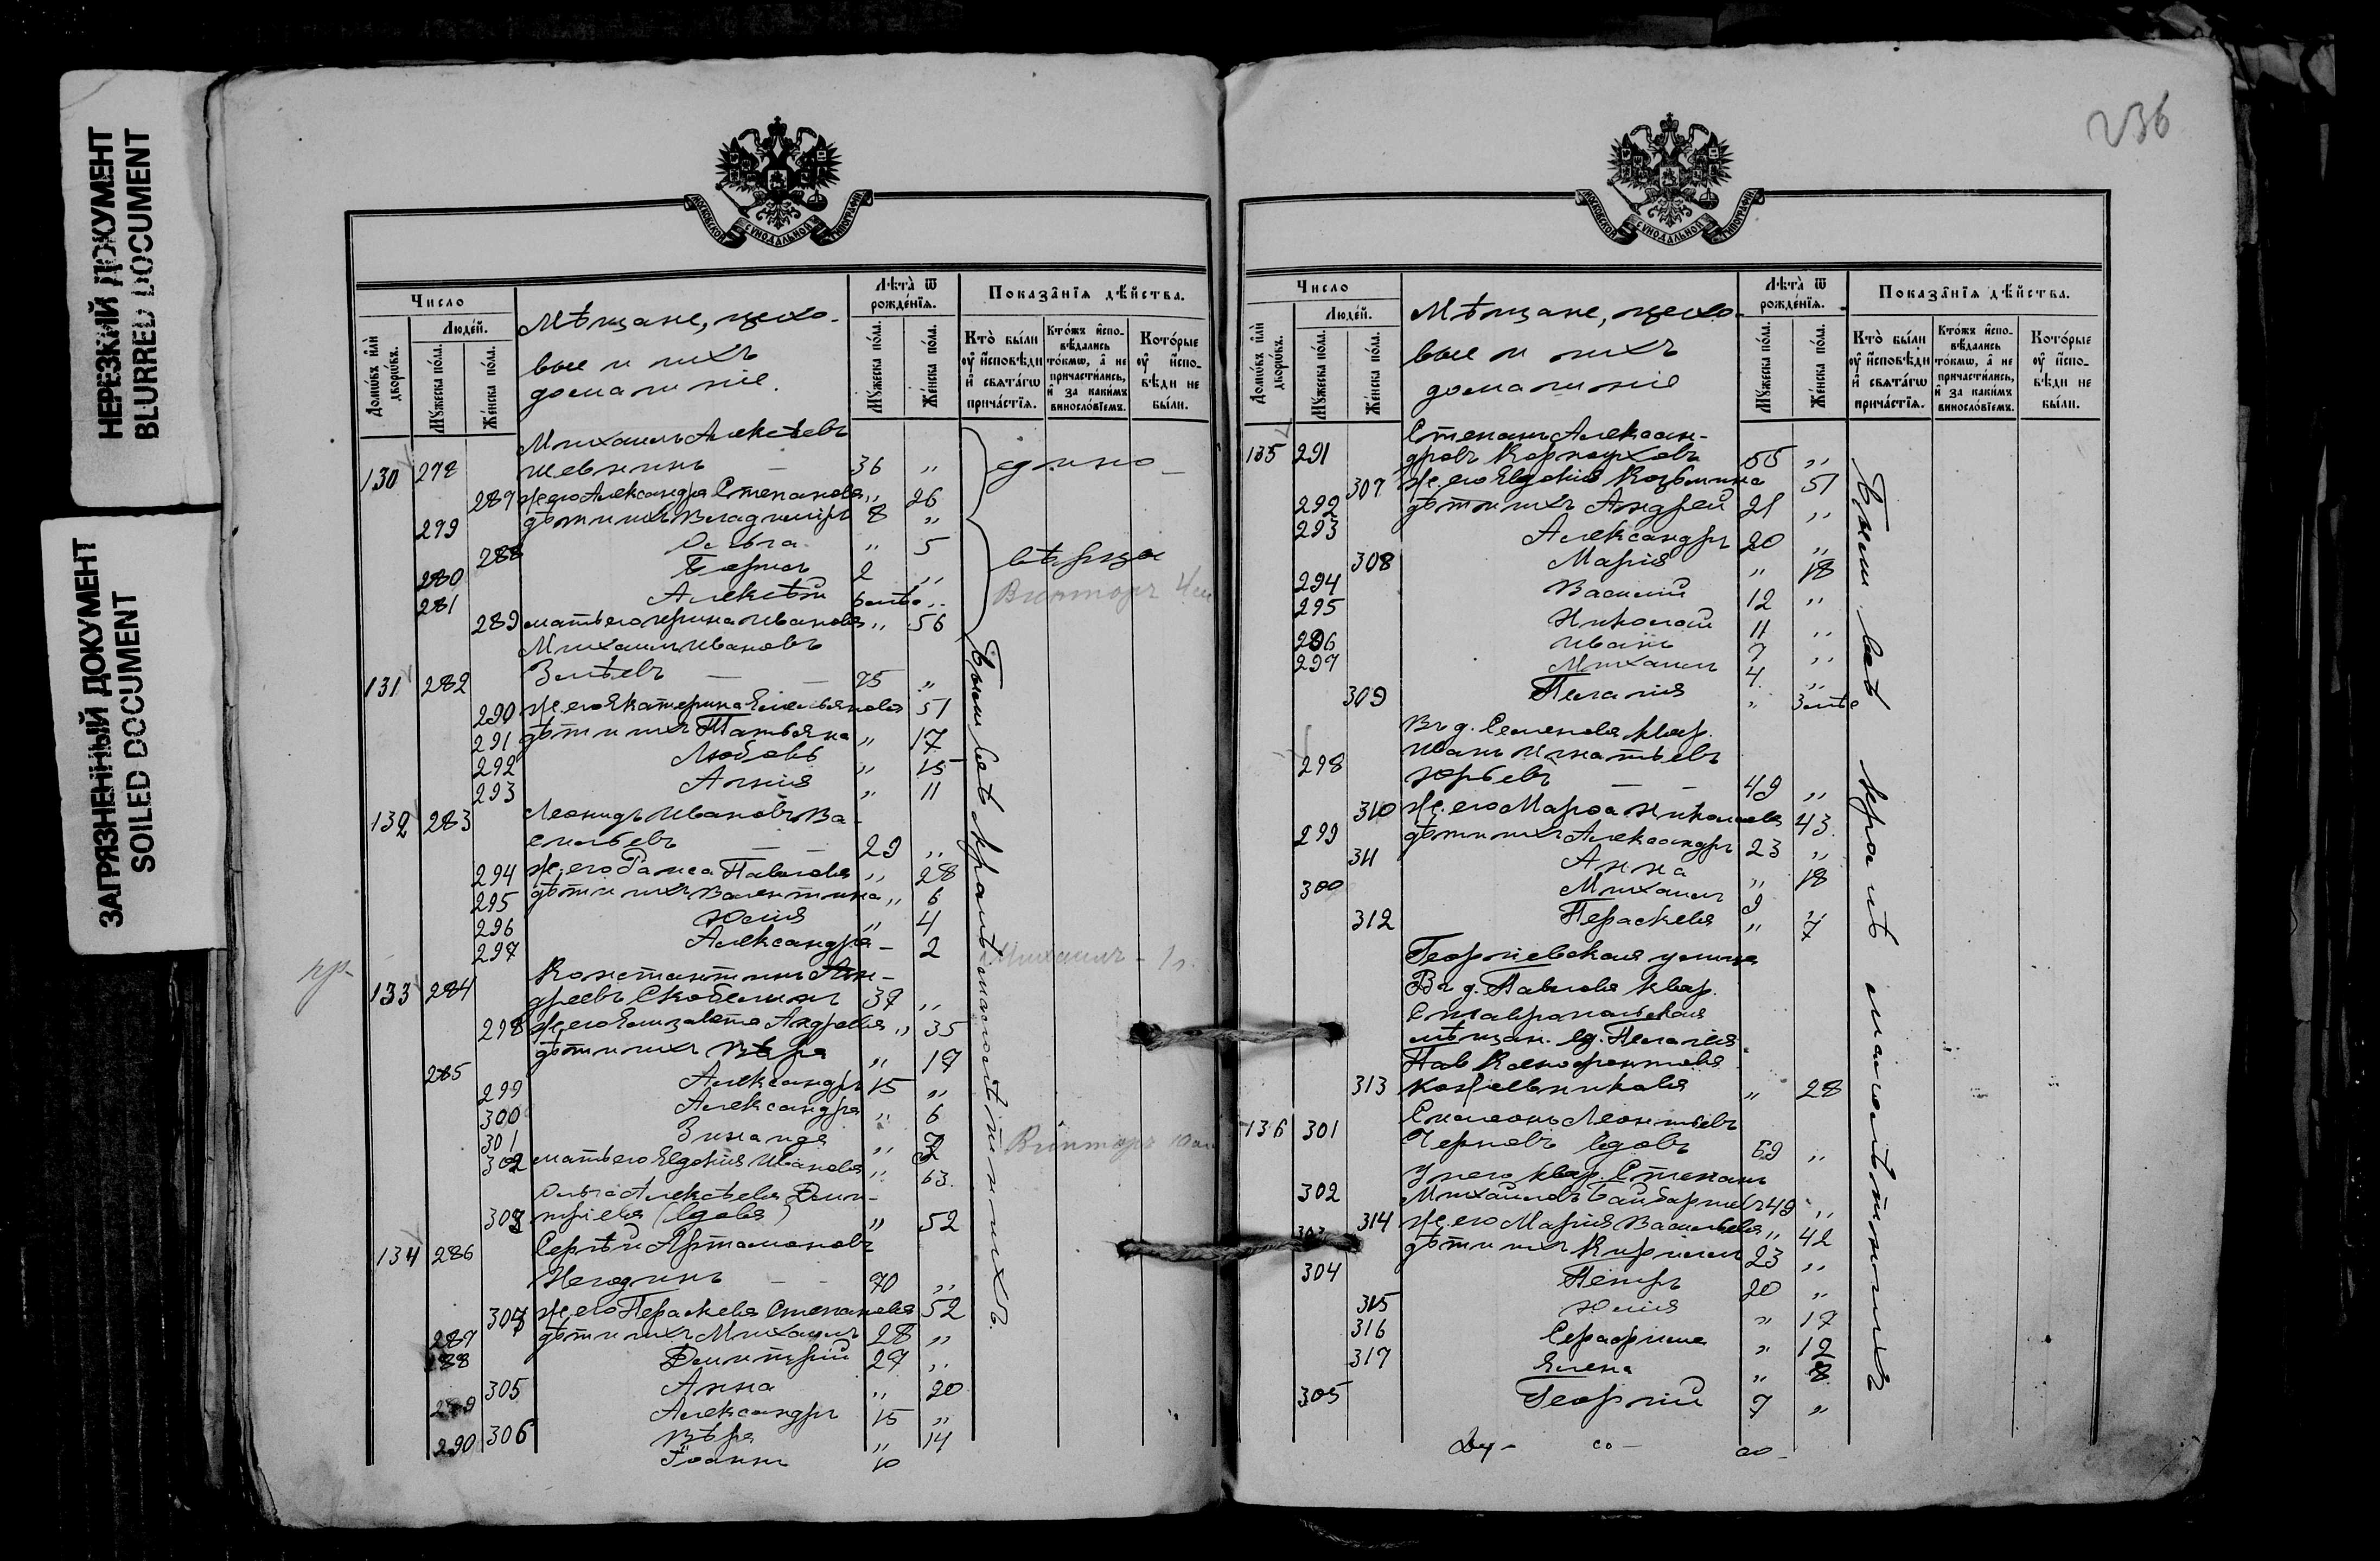 НЕРЕЗКИЙ ДОКУМЕНТ
BLURRED DOCUMENT
ЗАГРЯЗНЕННЫЙ ДОКУМЕНТ
SOILED DOCUMENT
МОСКОВСКОЙ СУНОДАЛЬНОЙ ТИПОГРАФІИ
Число
Домѡвъ или дворѡвъ.
Людей.
Мужеска пола.
Женска пола.
Мѣщане, цехо-
вые и ихъ
домашніе.
Лѣта ѿ рожденія.
Мужеска пола.
Женска пола.
Показанія дѣйства.
Кто были оу исповѣди и святагѡ причастія.
Ктожъ исповѣдались токмѡ, а не причастились, и за какимъ винословіемъ.
Которые оу исповѣди не были.
Михаилъ Алексѣевъ
130 278 36 „
287 ж. его Александра Степанова „ 26
279 дѣти ихъ Владиміръ 8 „
288 Ольга „ 5
280 Борисъ 2 „
281 Алексѣй „
289 мать его Ирина Иванова „ 56
едино-
вѣрцы
Викторъ
Михаилъ Ивановъ
131 282 75 „
290 ж. его Екатерина Емельянова 51
291 дѣти ихъ Татьяна „ 17
292 Любовь „ 15
293 Анна „ 11
132 283 Леонидъ Ивановъ Ва-
сильевъ 29 „
294 ж. его Раиса Павлова „ 28
295 дѣти ихъ Валентина „ 6
296 Юлія „ 4
297 Александра - 2
Михаилъ - 1
Константинъ Ан-
133 284 дреевъ Скобелинъ 37 „
298 ж. его Елизавета Андреева „ 35
дѣти ихъ Вѣра „ 17
285 Александръ 15 „
299 Александра „ 6
300 Зинаида „ 2
301
302 мать его Евдокія Иванова „ 63
Викторъ
Ольга Алексѣева Дми-
303 тріева (вдова) „ 52
134 286 Сергѣй Артамоновъ
Негодинъ 70 „
304 ж. его Параскева Степанова 52
287 дѣти ихъ Михаилъ 28 „
288 Димитрій 27 „
305 Анна „ 20
289 Александръ 15 „
290 306 Вѣра „ 14
Іоаннъ 10
Были всѣ кромѣ малолѣтнихъ.
236
МОСКОВСКОЙ СУНОДАЛЬНОЙ ТИПОГРАФІИ
Число
Домѡвъ или дворѡвъ.
Людей.
Мужеска пола.
Женска пола.
Мѣщане, цехо-
вые и ихъ
домашніе
Лѣта ѿ рожденія.
Мужеска пола.
Женска пола.
Показанія дѣйства.
Кто были оу исповѣди и святагѡ причастія.
Ктожъ исповѣдались токмѡ, а не причастились, и за какимъ винословіемъ.
Которые оу исповѣди не были.
Степанъ Александ-
135 291 ровъ Карнауховъ 55 „
307 ж. его Евдокія Козьмина 51
292 дѣти ихъ Андрей 21 „
293 Александръ 20 „
308 Марія „ 18
294 Василій 12 „
295 Николай 11 „
296 Иванъ 7 „
297 Михаилъ 4 „
309 Пелагія „
Въ д. Семенова квар.
Иванъ Игнатьевъ
298 Юрьевъ 49 „
310 ж. его Марѳа Николаева 43
299 дѣти ихъ Александръ 23 „
311 Анна „ 18
300 Михаилъ 9 „
312 Параскева „ 7
Георгіевская улица
Въ д. Павлова квар.
Ставропольская
мѣщан. вд. Пелагія
Ксенофонтова
313 Кожевникова „ 28
136 301 Симеонъ Леонтьевъ
Черновъ вдовъ 69 „
У него квар. Степанъ
302 Михайловъ 49 „
314 ж. его Марія Васильева „ 42
303 дѣти ихъ Кириллъ 23 „
304 Петръ 20 „
315 Юлія „ 17
316 Серафима „ 12
317 Елена „ 8
305 Георгій 7 „
Были всѣ кромѣ малолѣтнихъ